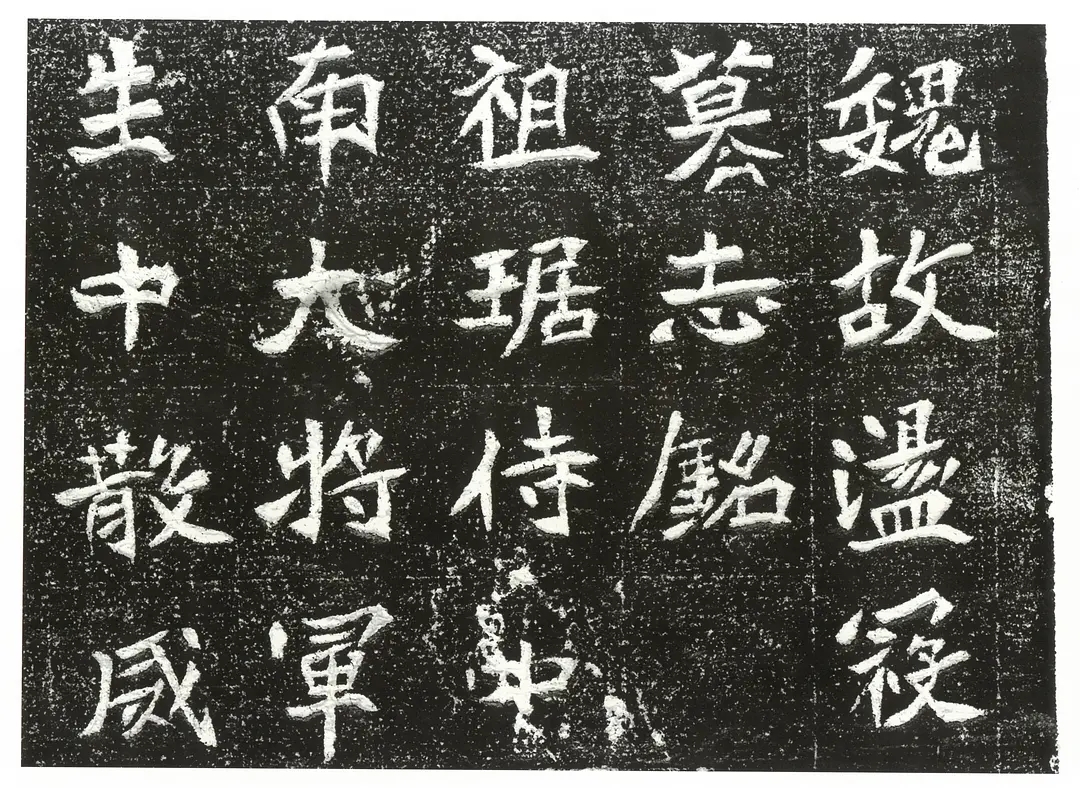 魏故盪寇
墓志銘
祖琚侍中
南大將軍
生中散咸